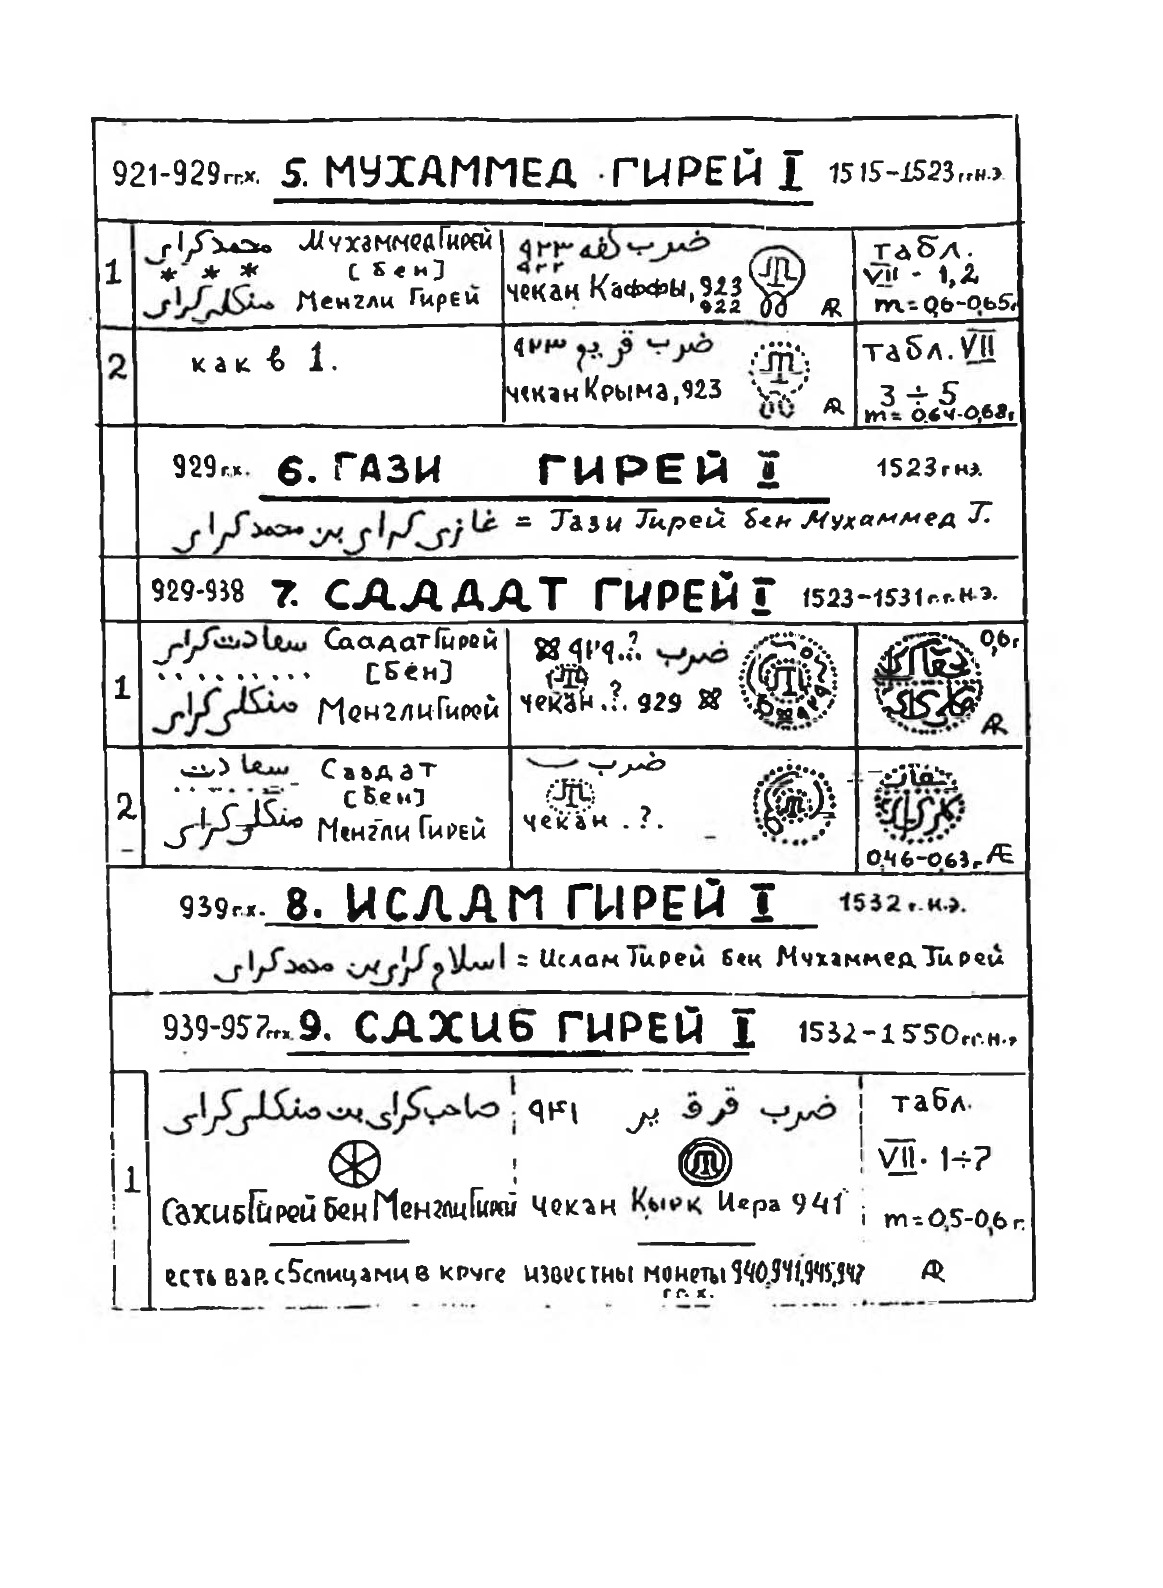 921-929гг.х. 5. МУХАММЕД ГИРЕЙ I 1515-1523гг н.э.
1 محمد كراى МухаммедГирей ضرب كفه ٩٢٣ табл.
* * * [бен] ٩٢٢ VII · 1,2
منكلى كراى Менгли Гирей чекан Каффы, 923 m=0,6-0,65г
922 AR
2 как в 1. ضرب قريم ٩٢٣ табл. VII
чекан Крыма, 923 3÷5
AR m=0.64-0,68г
929г.х. 6. ГАЗИ ГИРЕЙ I 1523г нэ.
غازى كراى بن محمد كراى = Гази Гирей бен Мухаммед Г.
929-938 7. СААДАТ ГИРЕЙ I 1523-1531г.г. н.э.
1 سعادت كراى СаадатГирей ضرب .?. ٩٢٩ 0,6г
[бен]
منكلى كراى МенглиГирей чекан .?. 929 AR
2 سعادت Саадат ضرب
[бен]
منكلى كراى Менгли Гирей чекан .?.
0,46-0,63г AE
939г.х. 8. ИСЛАМ ГИРЕЙ I 1532г. н.э.
اسلام كراى بن محمد كراى = Ислам Гирей бен Мухаммед Гирей
939-957гг.х. 9. САХИБ ГИРЕЙ I 1532-1550гг. н.э
1 صاحب كراى بن منكلى كراى ضرب قرق ير ٩٤١ табл.
VII · 1÷7
СахибГирей бен МенглиГирей чекан Кырк Иера 941 m=0,5-0,6г.
есть вар. с 5 спицами в круге известны монеты 940,941,945,947 AR
гг. х.